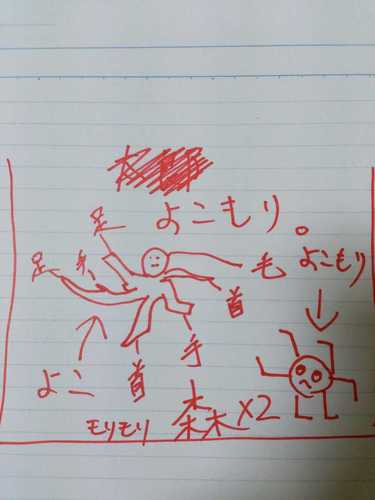 よこもり。
足
足
毛
よこもり
首
よこ
首
手
モリモリ
森×2